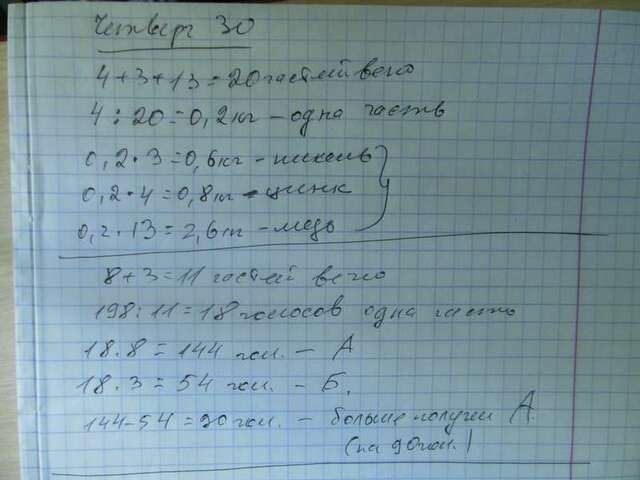 Четверг 30
4+3+13=20 частей всего
4:20=0,2кг - одна часть
0,2·3=0,6кг - никель
0,2·4=0,8кг - цинк
0,2·13=2,6кг - медь
8+3=11 частей всего
198:11=18 голосов одна часть
18·8=144 гол. - А
18·3=54 гол. - Б.
144-54=90 гол. - больше получил А
(на 90 гол.)